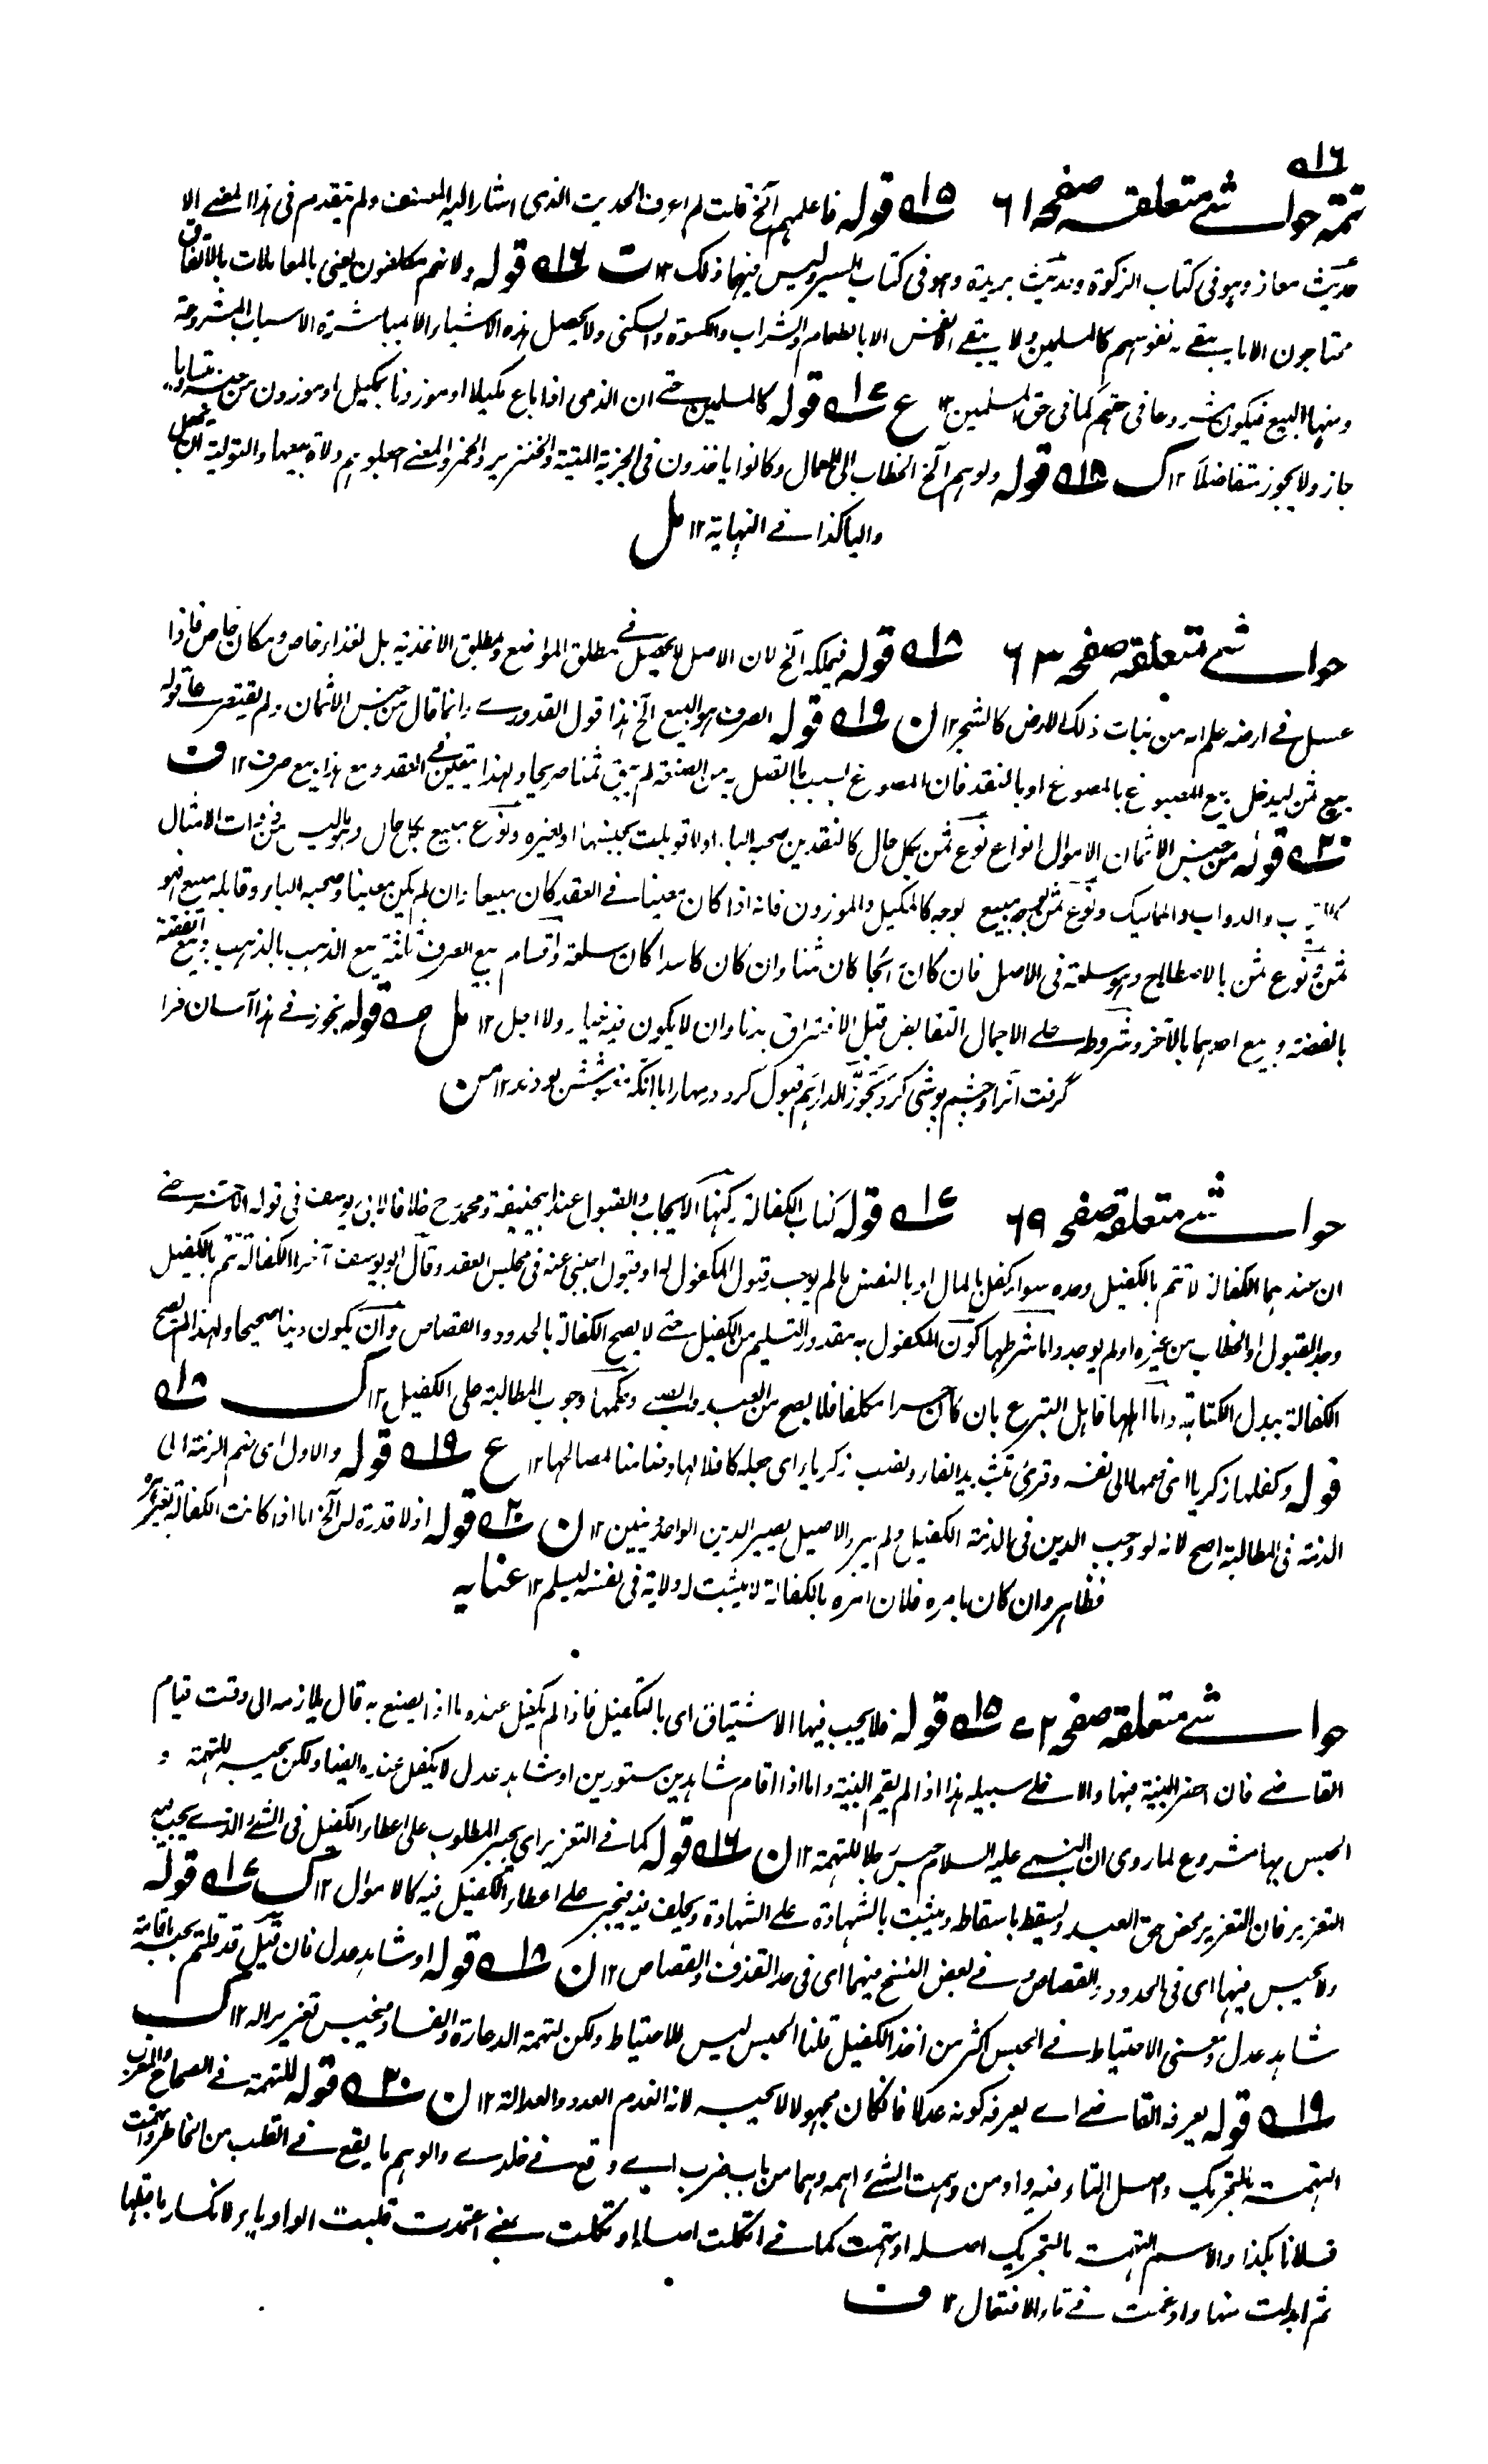 ۵۱۶
تتمہ حواشی متعلقہ صفحہ ۶۱ ۱۵ قولہ فاعلمہم الخ قلت لم اعرف الحدیث الذی اشار الیہ المصنف ولم یتقدم فی ہذا المعنے الا
حدیث معاذ وہو فی کتاب الزکوۃ وحدیث بریدۃ وہو فی کتاب السیر ولیس فیہما ذلک ۱۲ ت ۱۶ قولہ ولانہم مکلفون یعنی بالمعاملات بالاتفاق
محتاجون الا ما یبقے بہ نفوسہم کالمسلمین ولا یبقے الانفس الا بالطعام والشراب والکسوۃ والسکنی ولا یحصل ہذہ الاشیاء الا بمباشرۃ الاسباب المشروعۃ
ومنہا البیع فیکون مشروعا فی حقہم کما فی حق المسلمین ۱۲ ع ۱۷ قولہ کالمسلمین حتے ان الذمی اذا باع مکیلا او موزونا بمکیل او موزون من جنسہ متساویا
جاز ولا یجوز متفاضلا ۱۲ ک ۱۸ قولہ ولوہم الخ الخطاب الی العمال وکانوا یاخذون فی الجزیۃ المیتۃ والخنزیر والخمر والمعنے اجعلوہم ولاۃ بیعہا والتولیۃ ان یجعل
والیا کذا فے النہایۃ ۱۲ مل
حواشی متعلقہ صفحہ ۶۳ ۱۸ قولہ فیملکہ الخ لان الاصل لا یحصل فے مطلق المواضع ومطلق الاغذیۃ بل لغذاء خاص ومکان خاص فاذا
عسل فے ارضہ علم انہ من نبات ذلک الارض کالشجر ۱۲ ن ۱۹ قولہ الصرف ہو البیع الخ ہذا قول القدورے وانما قال من جنس الاثمان ولم یقتصر علے قولہ
بیع ثمن لیدخل بیع المصوغ بالمصوغ او بالنقد فان المصوغ بسبب ما اتصل بہ من الصنعۃ لم یبق ثمنا صریحا ولہذا یتعین فے العقد ومع ہذا بیع صرف ۱۲ ف
۲۰ قولہ من جنس الاثمان الاموال انواع نوع ثمن بکل حال کالنقدین صحبہ الباء اولا قوبلت بجنسہا او لغیرہ ونوع مبیع بکل حال وہو ما لیس من ذوات الامثال
کالثیاب والدواب والممالیک ونوع ثمن بوجہ مبیع بوجہ کالمکیل والموزون فانہ اذا کان معینا فے العقد کان مبیعا وان لم یکن معینا وصحبہ الباء وقابلہ مبیع فہو
ثمن ونوع ثمن بالاصطلاح وہو سلعۃ فی الاصل فان کان رائجا کان ثمنا وان کان کاسدا کان سلعۃ واقسام بیع الصرف ثلثۃ بیع الذہب بالذہب وبیع الفضۃ
بالفضۃ وبیع احدہما بالآخر وشروطہ علے الاجمال التقابض قبل الافتراق بدنا وان لا یکون فیہ خیار ولا اجل ۱۲ مل قولہ تجوز فے ہذا آسان فرا
گرفت آنرا وچشم پوشی کرد وتجوز الدراہم قبول کرد درمہا را با آنکہ ۱۲ من
حواشی متعلقہ صفحہ ۶۹ ۱۷ قولہ کتاب الکفالۃ رکنہا الایجاب والقبول عند ابیحنیفۃ ومحمد رح خلافا لابی یوسف فی قولہ الآخر حتے
ان عندہما الکفالۃ لا تتم بالکفیل وحدہ سواء کفل بالمال او بالنفس ما لم یوجب قبول المکفول لہ او قبول اجنبی عنہ فی مجلس العقد وقال ابو یوسف آخرا الکفالۃ تتم بالکفیل
وجد القبول او الخطاب من غیرہ او لم یوجد واما شرطہا کون المکفول بہ مقدور التسلیم من الکفیل حتے لا یصح الکفالۃ بالحدود والقصاص وان یکون دینا صحیحا ولہذا لم تصح
الکفالۃ ببدل الکتابۃ واما اہلہا قابل التبرع بان کان حرا مکلفا فلا یصح من العبد والصبے وحکمہا وجوب المطالبۃ علی الکفیل ۱۲ ک ۱۸
قولہ وکفلہا زکریا ای ضمہا الی نفسہ وقرئ بتشدید الفاء ونصب زکریاء ای جعلہ کافلا لہا وضامنا لمصالحہا ۱۲ ع ۱۹ قولہ والاول ای ضم الذمۃ الی
الذمۃ فی المطالبۃ اصح لانہ لو وجب الدین فی ذمۃ الکفیل ولم یبر الاصیل یصیر الدین الواحد دینین ۱۲ ن ۲۰ قولہ اذ لا قدرۃ لہ الخ اما اذا کانت الکفالۃ بغیر امرہ
فظاہر وان کان بامرہ فلان امرہ بالکفالۃ لا یثبت لہ ولایۃ فی نفسہ لیسلم ۱۲ عنایہ
حواشی متعلقہ صفحہ ۷۲ ۱۵ قولہ فلا یجب فیہا الاستیثاق ای بالتکفیل فاذا لم یکفل عندہ ماذا یصنع بہ قال یلازمہ الی وقت قیام
القاضے فان احضر البینۃ فیہا والا خلے سبیلہ ہذا اذا لم یقم البینۃ واما اذا اقام شاہدین مستورین او شاہد عدل لا یکفل عندہ ایضا ولکن یحبسہ للتہمۃ و
الحبس بہا مشروع لما روی ان النبے علیہ السلام حبس رجلا للتہمۃ ۱۲ ن ۱۶ قولہ کما فے التعزیر ای یجبر المطلوب علی اعطاء الکفیل فی الشے الذے یجب فیہ
التعزیر فان التعزیر محض حق العبد ویسقط باسقاطہ ویثبت بالشہادۃ علے الشہادۃ ویحلف فیہ فیجبر علے اعطاء الکفیل فیہ کالاموال ۱۲ ک ۱۷ قولہ
ولا یحبس فیہا ای فی الحدود والقصاص وفے بعض النسخ فیہما ای فی حد القذف والقصاص ۱۲ ن ۱۸ قولہ او شاہد عدل فان قیل قد قلتم یحبس باقامۃ
شاہد عدل ومعنی الاحتیاط فے الحبس اکثر من اخذ الکفیل قلنا الحبس لیس للاحتیاط ولکن لتہمۃ الدعارۃ والفساد فیحبس تعزیرا لہ ۱۲ ک
۱۹ قولہ یعرفہ القاضے اے یعرفہ کونہ عدلا فان کان مجہولا لا یحبسہ لانہ انعدم العدد والعدالۃ ۱۲ ن ۲۰ قولہ للتہمۃ فے الصحاح والمغرب
التہمۃ بالتحریک واصل التاء فیہ واو من وہمت الشے اہمہ وہما من باب ضرب اے وقع فے خلدے والوہم ما یقع فے القلب من الخاطر واتہمت
فلانا بکذا والاسم التہمۃ بالتحریک اصلہ اوتہمت کما فے اتکلت اصلہا اوتکلت بمعنے اعتمدت قلبت الواو یاء لانکسار ما قبلہا
ثم ابدلت منہا وادغمت فے تاء الافتعال ۱۲ ف